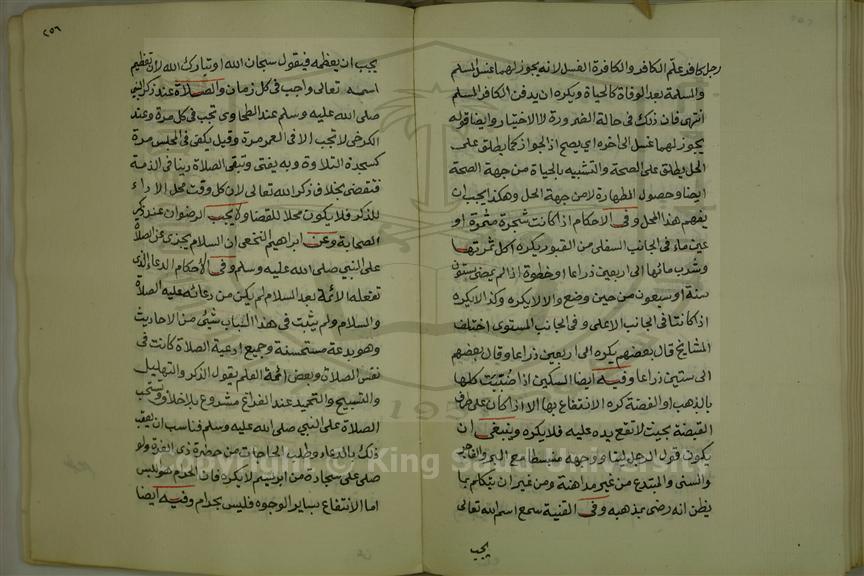 رجل كافر علم الكافر والكافرة الغسل لانه يجوز لهما غسل المسلم
والمسلمة بعد الوفاة كالحياة ويكره ان يدفن الكافر المسلم
انتهى فان ذلك في حالة الضرورة لا الاختيار وايضا قوله
يجوز لهما غسل الى اخره اي يصح اذ الجواز كما يطلق على
الحل يطلق على الصحة والتشبيه بالحياة من جهة الصحة
ايضا وحصول الطهارة لا من جهة الحل وهكذا يجب ان
يفهم هذا المحل وفي الاحكام اذا كانت شجرة مثمرة او
عين ماء في الجانب السفلى من القبور يكره اكل ثمرتها
وشرب مائها الى اربعين ذراعا او خطوة اذا لم يمض ستون
سنة او سبعون من حين وضع والا لا يكره وكذا لا يكره
اذا كانتا في الجانب الاعلى وفي الجانب المستوى اختلف
المشايخ قال بعضهم يكره الى اربعين ذراعا وقال بعضهم
الى ستين ذراعا وفيه ايضا السكين اذا ضببت كلها
بالذهب او الفضة كره الانتفاع بها الا اذا كان على طرف
القبضة بحيث لا تقع يده عليه فلا يكره وينبغي ان
يكون قول الرجل لينا ووجهه منبسطا مع البر والفاجر
والسنى والمبتدع من غير مداهنة ومن غير ان يتكلم بما
يظن انه رضى بمذهبه وفي القنية سمع اسم الله تعالى
يجب
٢٥٦
يجب ان يعظمه فيقول سبحان الله او تبارك الله لان تعظيم
اسمه تعالى واجب في كل زمان والصلاة عند ذكر النبي
صلى الله عليه وسلم عند الطحاوى تجب في كل مرة وعند
الكرخى لا تجب الا في العمر مرة وقيل يكفى في المجلس مرة
كسجدة التلاوة وبه يفتى وتبقى الصلاة دينا في الذمة
فتقضى بخلاف ذكر الله تعالى لان كل وقت محل الاداء
للذكر فلا يكون محلا للقضا ولا يجب الرضوان عند ذكر
الصحابة وعن ابراهيم النخعى ان السلام يجزى عن الصلاة
على النبي صلى الله عليه وسلم وفي الاحكام الدعاء الذى
تفعله الائمة بعد السلام لم يكن من دعائه عليه الصلاة
والسلام ولم يثبت في هذا الباب شئ من الاحاديث
وهو بدعة مستحسنة وجميع ادعية الصلاة كانت في
نفس الصلاة وبعض ائمة العلم يقول الذكر والتهليل
والتسبيح والتحميد عند الفراغ مشروع بلا خلاف ويستحب
الصلاة على النبي صلى الله عليه وسلم فناسب ان يعقب
ذلك بالدعاء وطلب الحاجات من حضرة ذى القدرة ولو
صلى على سجادة من ابريسم لا يكره فان الحرام هو اللبس
اما الانتفاع بساير الوجوه فليس بحرام وفيه ايضا
Copyright © King Saud University